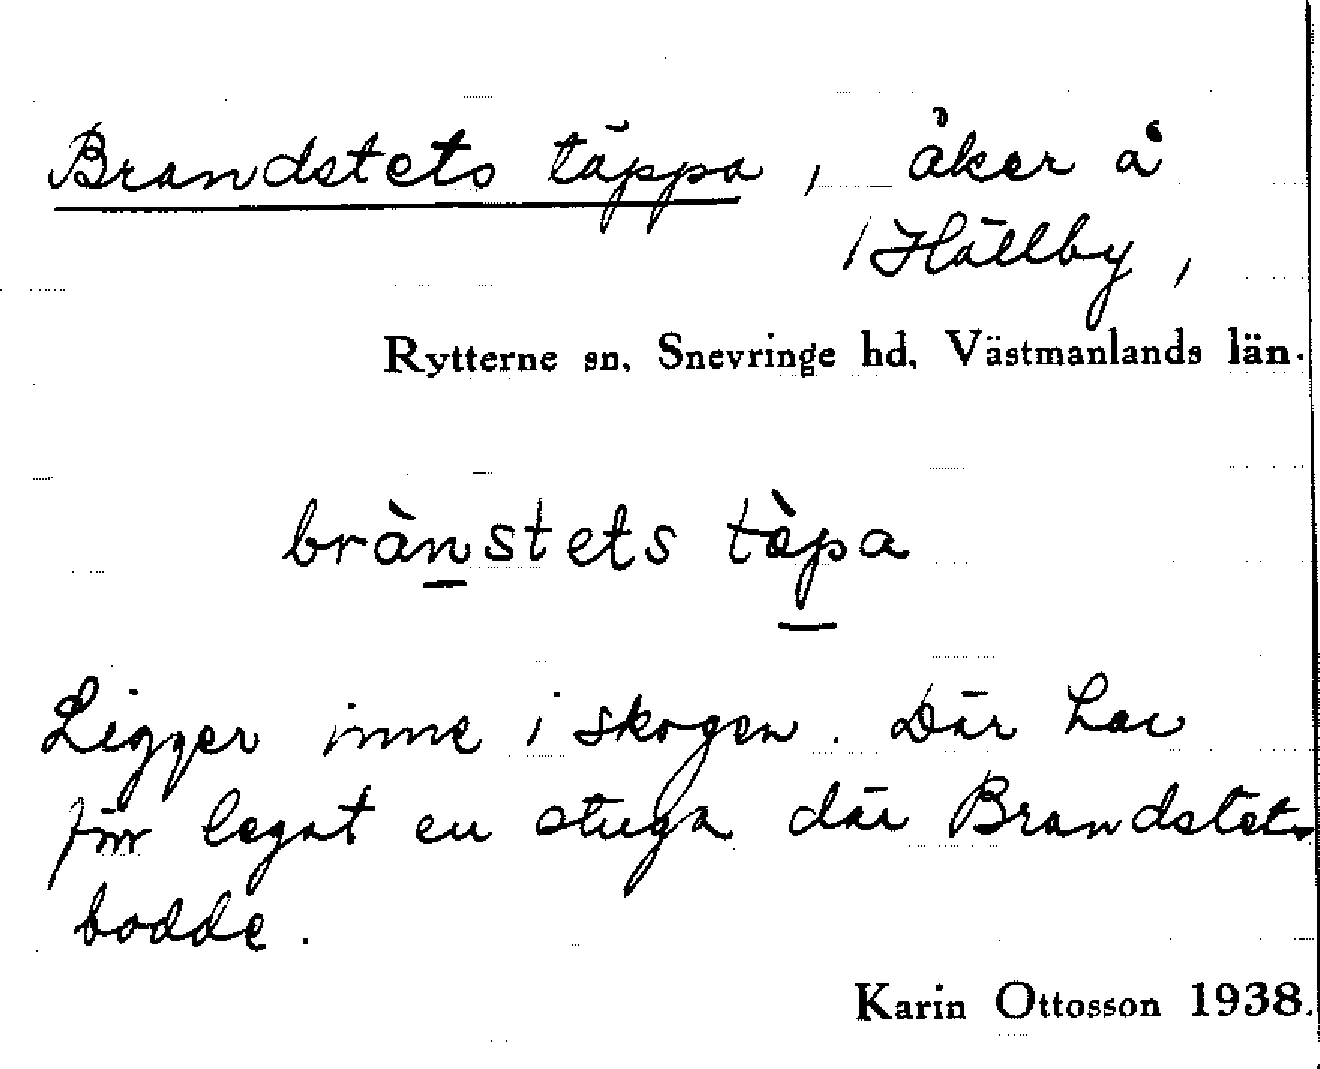 Brandstets täppa, åker å
/ Hällby,
Rytterne sn, Snevringe hd, Västmanlands län.
bràn̲stets tæ̀p̲a
Ligger inne i skogen. Där har
förr legat en stuga där Brandstets
bodde.
Karin Ottosson 1938.